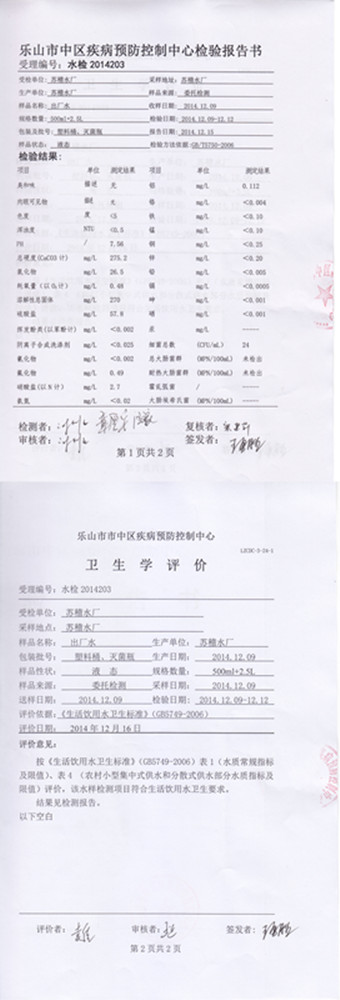 乐山市中区疾病预防控制中心检验报告书
受理编号：水检 2014203
受检单位：苏稽水厂 采样地址：苏稽水厂
生产单位：苏稽水厂 样品来源：委托检测
样品名称：出厂水 收样日期：2014.12.09
规格数量：500ml+2.5L 检验日期：2014.12.09-12.12
包装及批号：塑料桶、灭菌瓶 报告日期：2014.12.15
样品状态：液态 检验方法依据:GB/T5750-2006
检验结果：
项目 单位 测定结果 项目 单位 测定结果
臭和味 描述 无 铝 mg/L 0.112
肉眼可见物 描述 无 mg/L <0.004
色度 度 <5 铁 mg/L <0.10
浑浊度 NTU <0.5 锰 mg/L <0.10
PH / 7.56 铜 mg/L <0.25
总硬度(CaCO3 计) mg/L 275.2 锌 mg/L <0.20
氯化物 mg/L 26.5 铅 mg/L <0.005
耗氧量（以 O₂计） mg/L 0.48 镉 mg/L <0.0005
溶解性总固体 mg/L 270 砷 mg/L <0.001
硫酸盐 mg/L 57.8 硒 mg/L <0.001
挥发酚类(以苯酚计) mg/L <0.002 汞 mg/L ------
阴离子合成洗涤剂 mg/L <0.025 细菌总数 (CFU/mL) 24
氰化物 mg/L <0.002 总大肠菌群 (MPN/100mL) 未检出
氟化物 mg/L 0.49 耐热大肠菌群 (MPN/100mL) 未检出
硝酸盐(以 N 计) mg/L 2.7 霍乱弧菌 / ------
氨氮 mg/L <0.02 大肠埃希氏菌 (MPN/100mL) ------
检测者： 复核者：
审核者： 签发者：
第 1 页共 2 页
乐山市市中区疾病预防控制中心
LJCDC-3-24-1
卫 生 学 评 价
受理编号：水检 2014203
受检单位：苏稽水厂
采样地点：苏稽水厂
样品名称：出厂水 生产单位：苏稽水厂
包装批号：塑料桶、灭菌瓶 生产日期：2014.12.09
样品性状：液 态 规格数量：500ml+2.5L
样品来源：委托检测 采样日期：2014.12.09
送样日期：2014.12.09 检验日期：2014.12.09-12.12
评价依据：《生活饮用水卫生标准》(GB5749-2006)
评价日期：2014 年 12 月 16 日
评价意见：
按《生活饮用水卫生标准》(GB5749-2006) 表 1（水质常规指标
及限值）、表 4 （农村小型集中式供水和分散式供水部分水质指标及
限值）评价，该水样检测项目符合生活饮用水卫生要求。
结果见检测报告。
以下空白
评价者： 审核者： 签发者：
第 2 页共 2 页